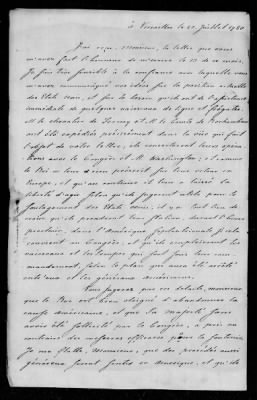 à Versailles le 20 Juillet 1780
J'ai reçu, monsieur, la lettre que vous
m'avez fait l'honneur de m'écrire le 15 de ce mois.
Je suis très sensible à la confiance avec laquelle vous
m'avez communiqué vos idées sur la position actuelle
des Etats unis, et sur le besoin qu'ils ont de l'assistance
immédiate de quelques vaisseaux de ligne et frégattes
M. le chevalier de Ternay et M. le Comte de Rochambeau
ont été expédiés précisément dans la vüe qui fait
l'objet de votre lettre; ils concerteront leurs opéra-
tions avec le Congrès et M. Washington; et comme
le Roi ne leur a rien prescrit sur leur retour en
Europe, et qu'au contraire il leur a laissé la
liberté d'agir selon qu'ils jugeront utile pour le
soulagement des Etats unis, il y a tout lieu de
croire qu'ils prendront leur station, durant l'hiver
prochain, dans l'Amérique septentrionale si cela
convient au Congrès, et qu'ils employeront les
vaisseaux et les troupes qui sont sous leur com-
mandement, selon le plan qui aura été arrêté
entr'eux et les généraux américains.
Vous jugerez par ces détails, monsieur
que le Roi est bien éloigné d'abandonner la
cause américaine, et que Sa Majesté sans
avoir été sollicitée par le Congrès, a pris au
contraire des mesures efficaces pour la soutenir.
Je me flatte, monsieur, que des procédés aussi
généreux seront sentis en Amérique, et qu'ils